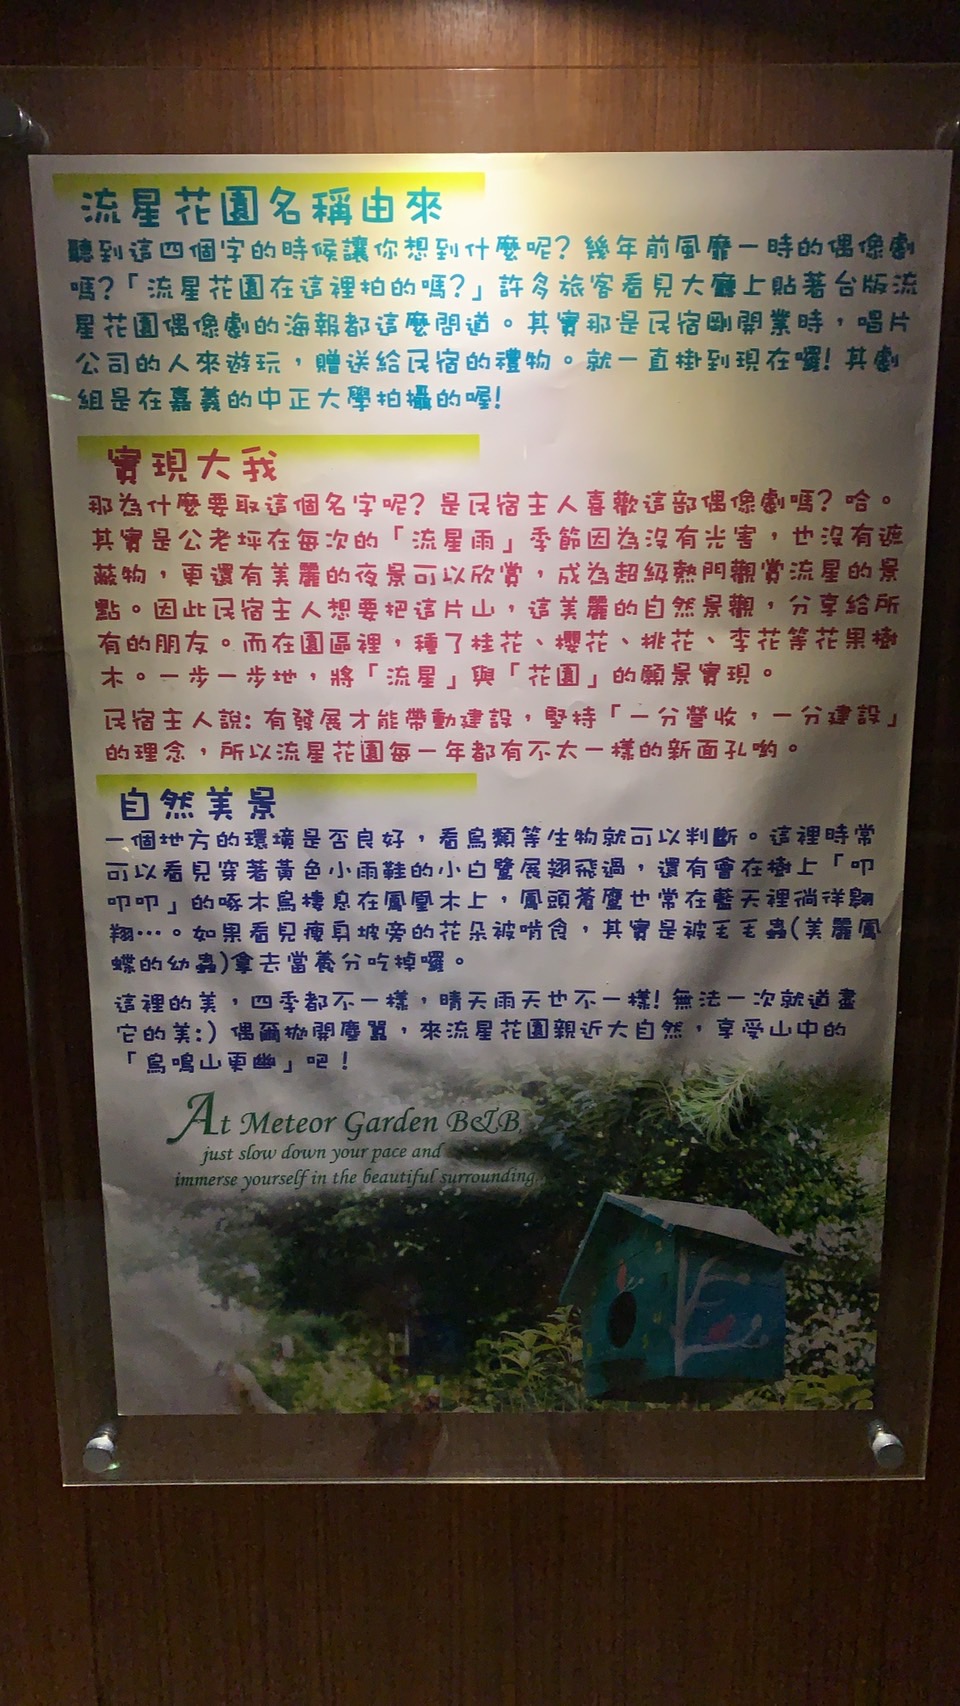 流星花園名稱由來
聽到這四個字的時候讓你想到什麼呢? 幾年前風靡一時的偶像劇
嗎?「流星花園在這裡拍的嗎?」許多旅客看見大廳上貼著台版流
星花園偶像劇的海報都這麼問道。其實那是民宿剛開業時，唱片
公司的人來遊玩，贈送給民宿的禮物。就一直掛到現在囉! 其劇
組是在嘉義的中正大學拍攝的喔!
實現大我
那為什麼要取這個名字呢? 是民宿主人喜歡這部偶像劇嗎? 哈。
其實是公老坪在每次的「流星雨」季節因為沒有光害，也沒有遮
蔽物，更還有美麗的夜景可以欣賞，成為超級熱門觀賞流星的景
點。因此民宿主人想要把這片山，這美麗的自然景觀，分享給所
有的朋友。而在園區裡，種了桂花、櫻花、桃花、李花等花果樹
木。一步一步地，將「流星」與「花園」的願景實現。
民宿主人說: 有發展才能帶動建設，堅持「一分營收，一分建設」
的理念，所以流星花園每一年都有不太一樣的新面孔喲。
自然美景
一個地方的環境是否良好，看鳥類等生物就可以判斷。這裡時常
可以看見穿著黃色小雨鞋的小白鷺展翅飛過，還有會在樹上「叩
叩叩」的啄木鳥棲息在鳳凰木上，鳳頭蒼鷹也常在藍天裡徜徉翱
翔…。如果看見瘦身坡旁的花朵被啃食，其實是被毛毛蟲(美麗鳳
蝶的幼蟲)拿去當養分吃掉囉。
這裡的美，四季都不一樣，晴天雨天也不一樣! 無法一次就道盡
它的美:) 偶爾拋開塵囂，來流星花園親近大自然，享受山中的
「鳥鳴山更幽」吧！
At Meteor Garden B&B,
just slow down your pace and
immerse yourself in the beautiful surrounding.